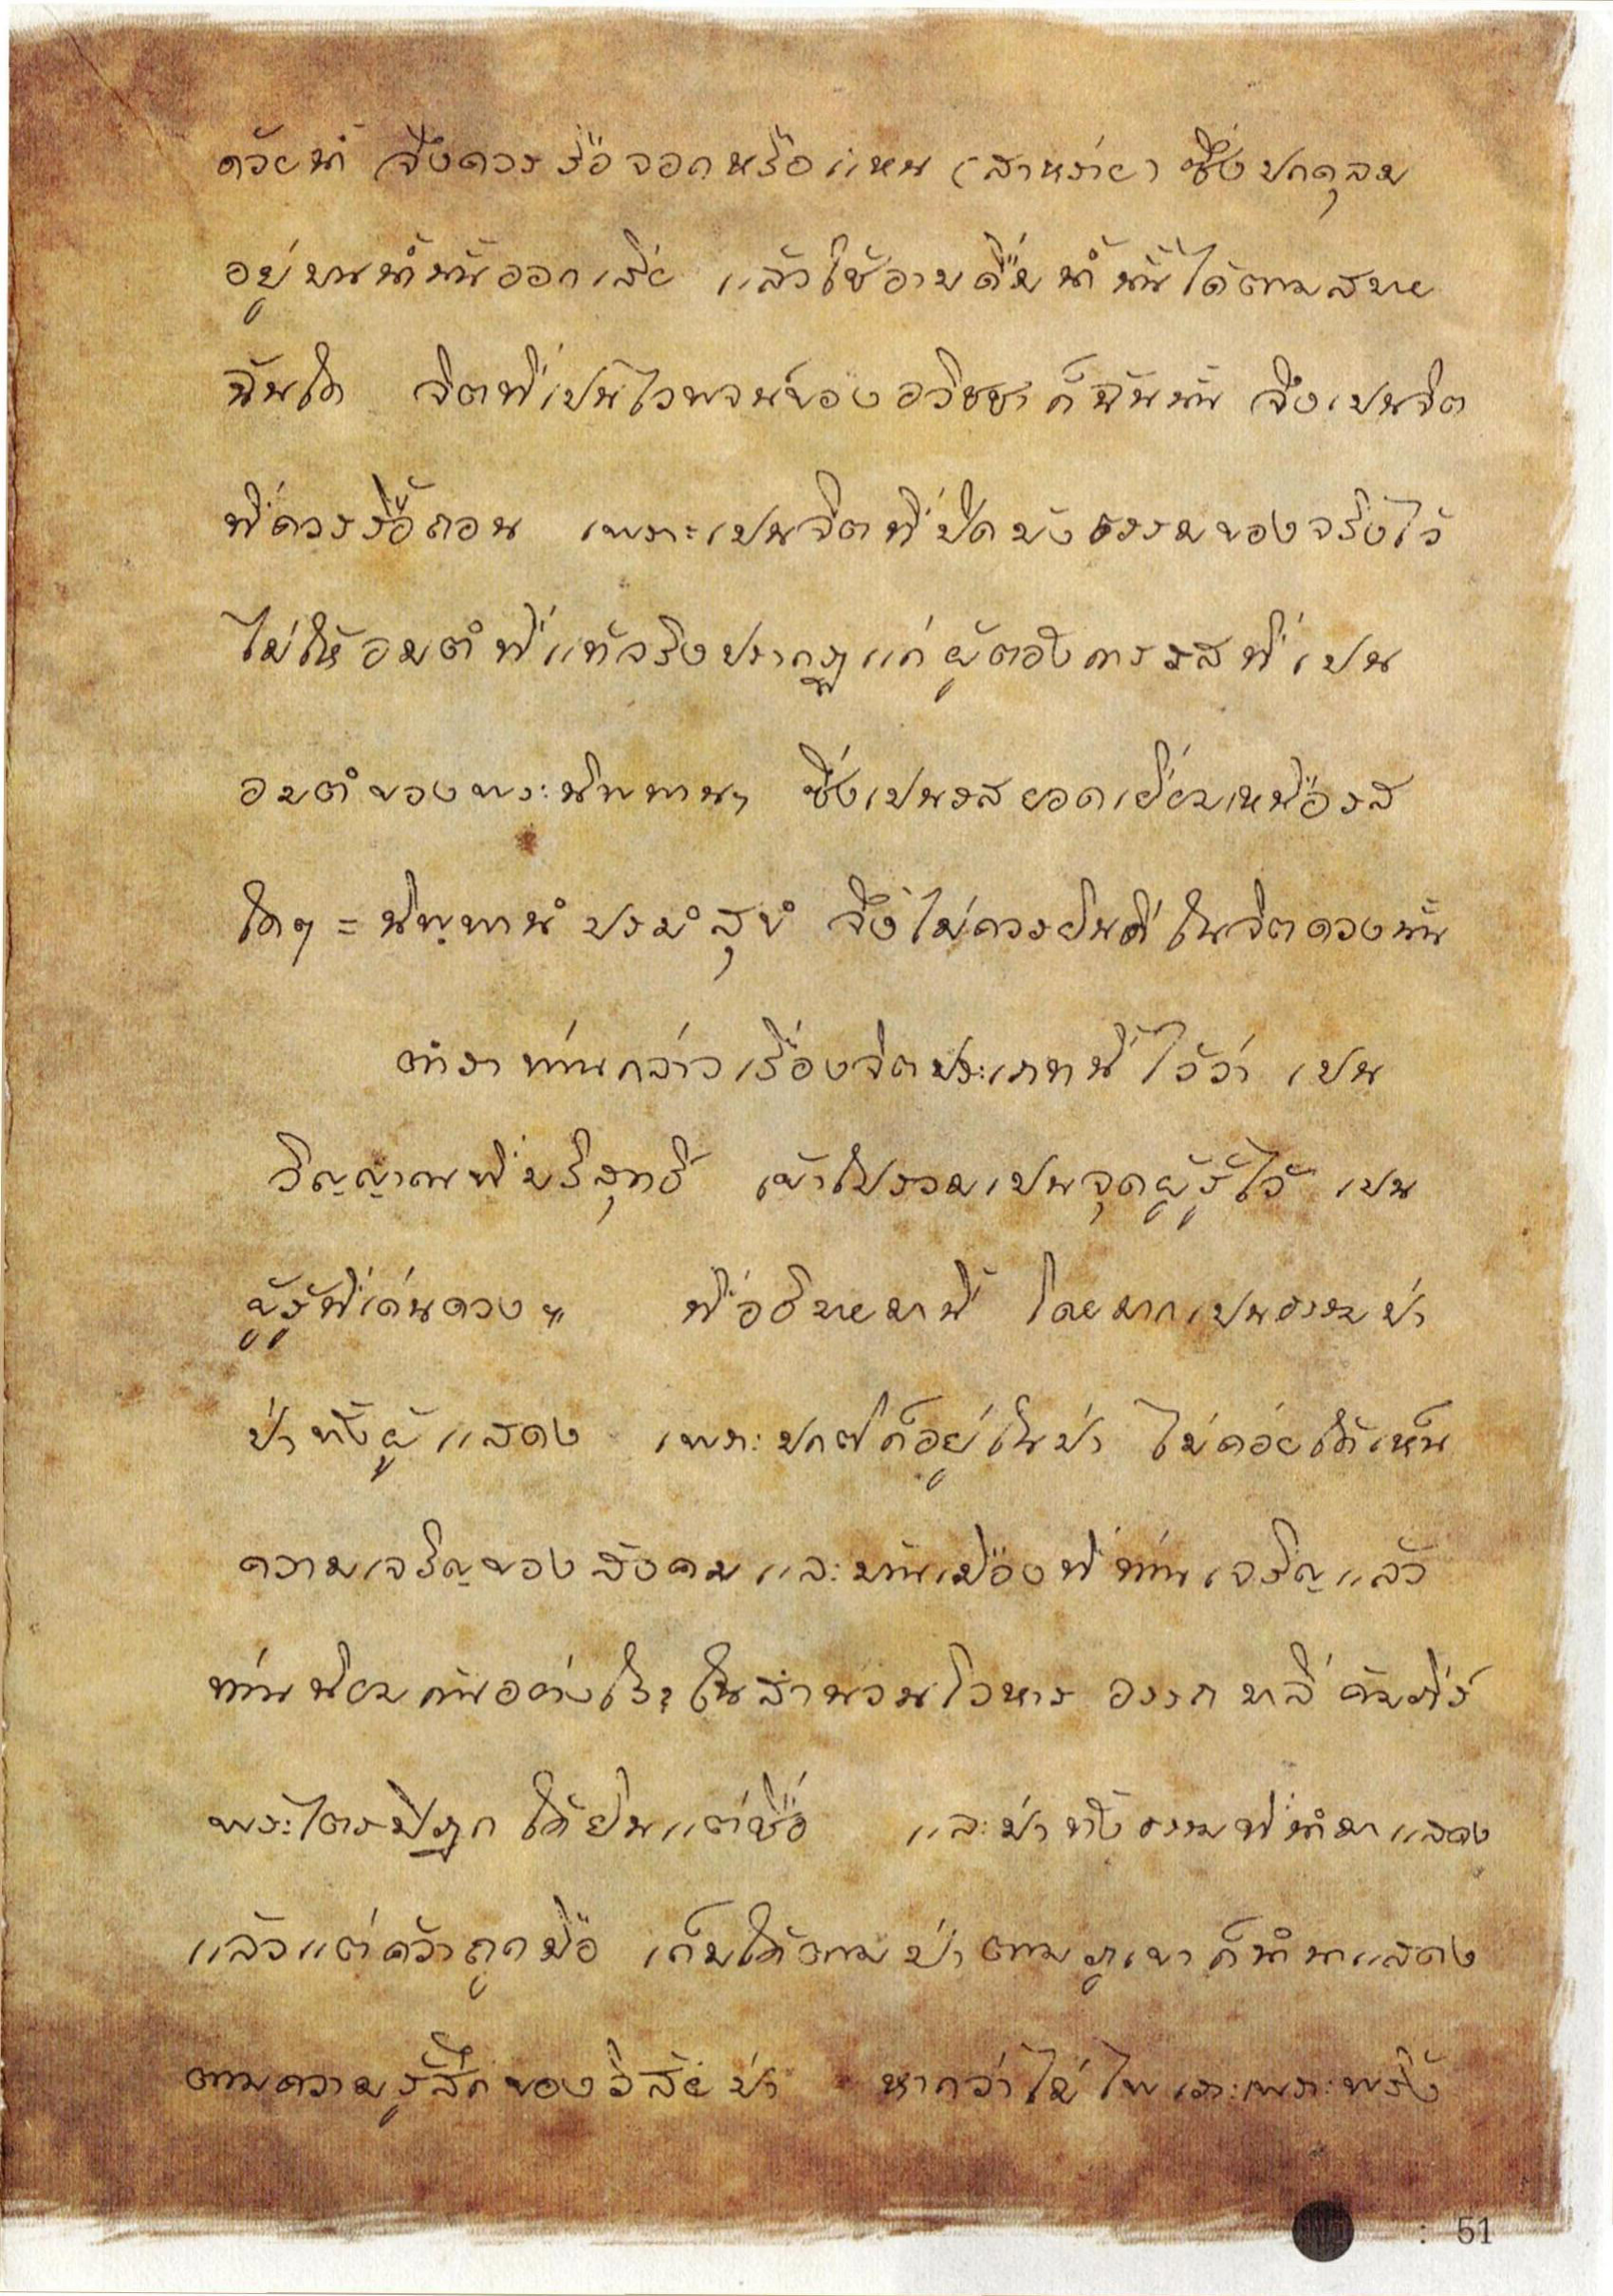 ด้วยน้ำ จึงควรรื้อจอกหรือแหน (สาหร่าย) ซึ่งปกคลุม
อยู่บนน้ำนั้นออกเสีย แล้วใช้อาบดื่มน้ำนั้นได้ตามสบาย
ฉันใด จิตที่เป็นไวพจน์ของอวิชชาก็ฉันนั้น จึงเปนจิต
ที่ควรรื้อถอน เพราะเปนจิตที่ปิดบังธรรมของจริงไว้
ไม่ให้อมตํที่แท้จริงปรากฏแก่ผู้ต้องการรสที่เปน
อมตํของพระนิพพานฯ ซึ่งเปนรสยอดเยี่ยมเหนือรส
ใดๆ = นิพฺพานํ ปรมํ สุขํ จึงไม่ควรยินดีในจิตดวงนั้น
ตำราท่านกล่าวเรื่องจิตประเภทนี้ไว้ว่า เปน
วิญญาณที่บริสุทธิ์ เข้าไปรวมเปนจุดผู้รู้ไว้ เปน
ผู้รู้ที่เด่นดวงฯ ที่อธิบายมานี้ โดยมากเปนธรรมป่า
ป่าทั้งผู้แสดง เพราะปกติก็อยู่ในป่า ไม่ค่อยได้เห็น
ความเจริญของสังคมและบ้านเมืองที่ท่านเจริญแล้ว
ท่านนิยมกันอย่างไร? ในสำนวนโวหาร อรรถ บาลี คัมภีร์
พระไตรปิฎก ได้ยินแต่ชื่อ และป่าทั้งธรรมที่นำมาแสดง
แล้วแต่คว้าถูกมือ เก็บได้ตามป่าตามภูเขาก็นำมาแสดง
ตามความรู้สึกของวิสัยป่า หากว่าไม่ไพเราะเพราะพริ้ง
: 51